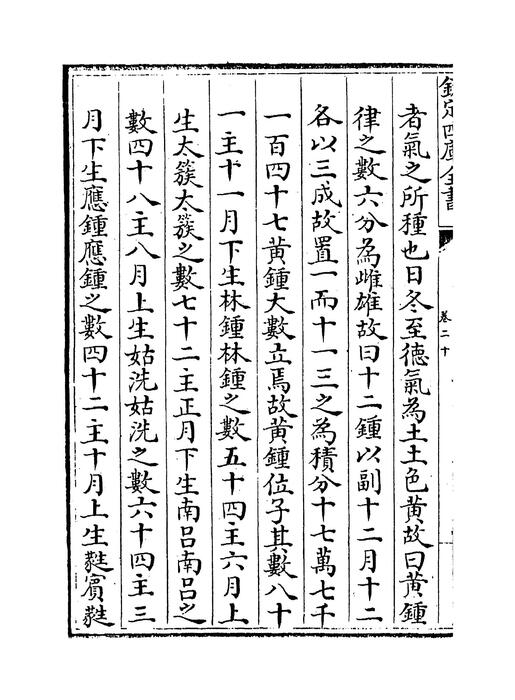 欽定四庫全書
卷二十
者氣之所種也日冬至德氣為土土色黃故曰黃鍾
律之數六分為雌雄故曰十二鍾以副十二月十二
各以三成故置一而十一三之為積分十七萬七千
一百四十七黃鍾大數立焉故黃鍾位子其數八十
一主十一月下生林鍾林鍾之數五十四主六月上
生太簇太簇之數七十二主正月下生南呂南呂之
數四十八主八月上生姑洗姑洗之數六十四主三
月下生應鍾應鍾之數四十二主十月上生蕤賓蕤